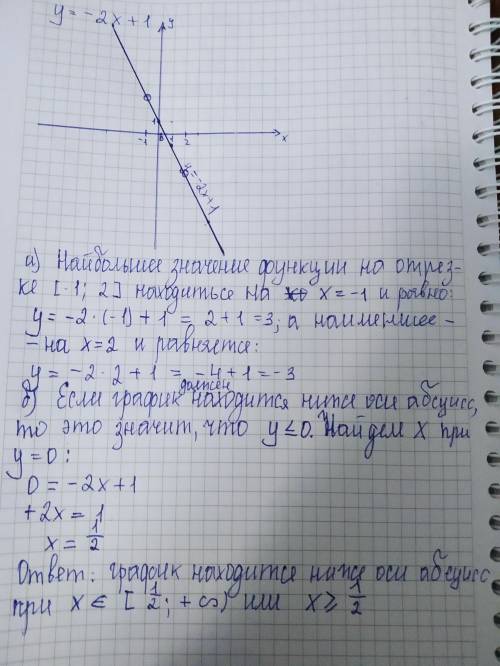 y = -2x+1
y
1
-1 0 1 2 x
y=-2x+1
а) Наибольшее значение функции на отрез-
ке [-1; 2] находиться на x = -1 и равно:
y = -2·(-1)+1 = 2+1=3, а наименшее -
- на x=2 и равняется:
y = -2·2+1 = -4+1=-3
должен
б) Если график находится ниже оси абсцисс,
то это значит, что y≤0. Найдем x при
y=0:
0 = -2x+1
+2x = 1
x = 1/2
Ответ: график находится ниже оси абсцисс
при x ∈ [1/2; +∞) или x ≥ 1/2